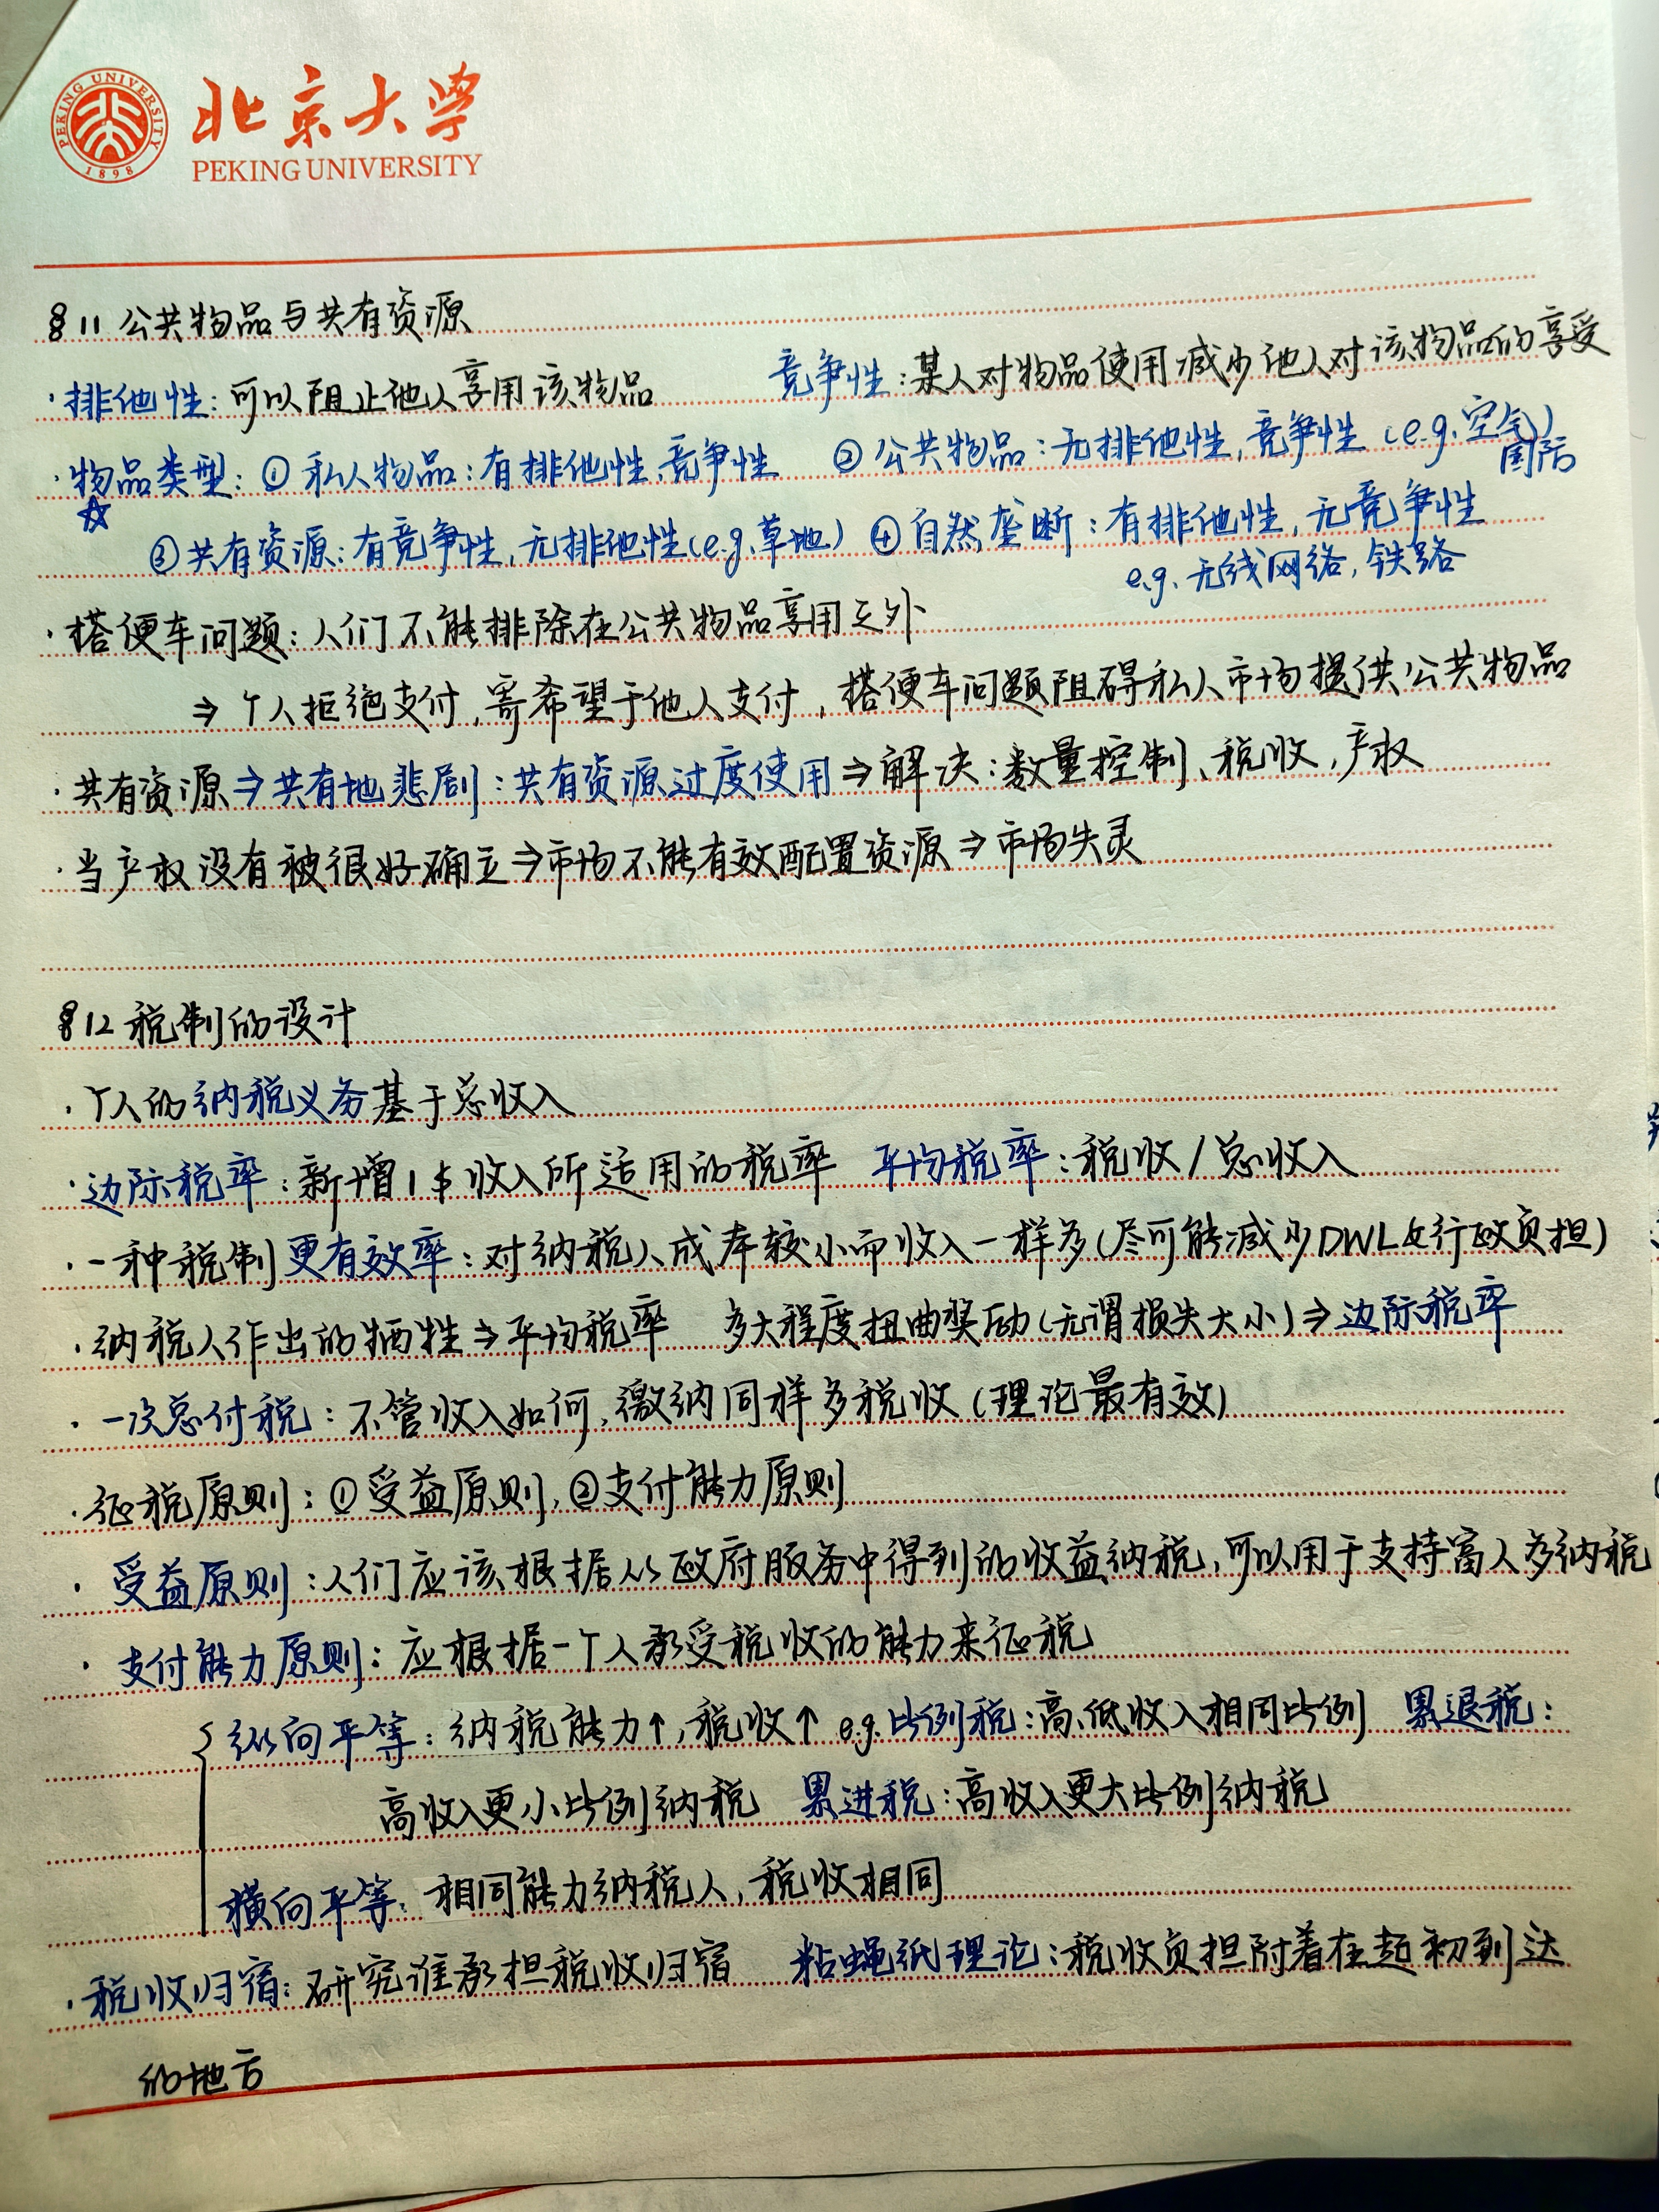 PEKING UNIVERSITY
1898
北京大学
PEKING UNIVERSITY
§11 公共物品与共有资源
·排他性:可以阻止他人享用该物品 竞争性:某人对物品使用减少他人对该物品的享受
·物品类型:① 私人物品:有排他性,竞争性 ② 公共物品:无排他性,竞争性(e.g.空气)
国防
☆
③共有资源:有竞争性,无排他性(e.g.草地) ④自然垄断:有排他性,无竞争性
e.g.无线网络,铁路
·搭便车问题:人们不能排除在公共物品享用之外
⇒ 个人拒绝支付,寄希望于他人支付,搭便车问题阻碍私人市场提供公共物品
·共有资源⇒共有地悲剧:共有资源过度使用⇒解决:数量控制、税收,产权
·当产权没有被很好确立⇒市场不能有效配置资源⇒市场失灵
§12 税制的设计
·个人的纳税义务基于总收入
·边际税率:新增1$收入所适用的税率 平均税率:税收/总收入
·一种税制更有效率:对纳税人成本较小而收入一样多(尽可能减少DWL&行政负担)
·纳税人作出的牺牲⇒平均税率 多大程度扭曲奖励(无谓损失大小)⇒边际税率
·一次总付税:不管收入如何,缴纳同样多税收(理论最有效)
·征税原则:①受益原则,②支付能力原则
·受益原则:人们应该根据从政府服务中得到的收益纳税,可以用于支持富人多纳税
·支付能力原则:应根据一个人承受税收的能力来征税
纵向平等:纳税能力↑,税收↑ e.g.比例税:高、低收入相同比例 累退税:
高收入更小比例纳税 累进税:高收入更大比例纳税
横向平等:相同能力纳税人,税收相同
·税收归宿:研究谁承担税收归宿 粘蝇纸理论:税收负担附着在起初到达
的地方